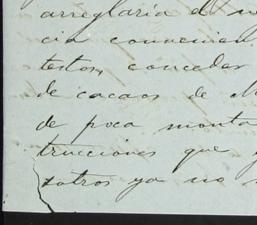 arreglaria el
cia convenien
testos, conceder
de cacaos de
de poca monta
trucciones que
sotros ya no